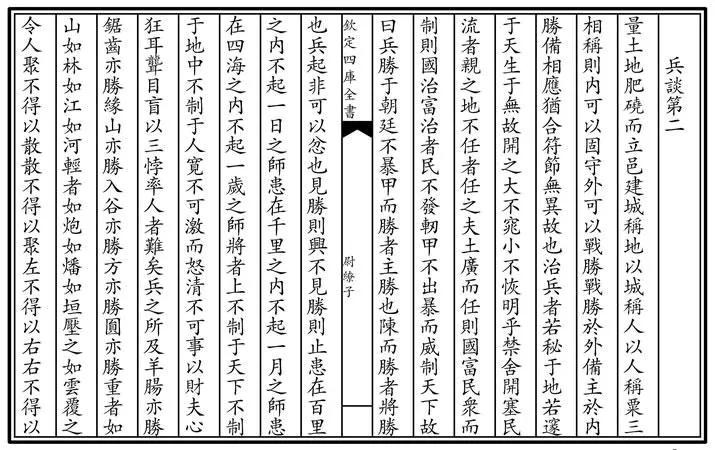 兵談第二
量土地肥磽而立邑建城稱地以城稱人以人稱粟三
相稱則内可以固守外可以戰勝戰勝於外備主於内
勝備相應猶合符節無異故也治兵者若秘于地若邃
于天生于無故開之大不窕小不恢明乎禁舍開塞民
流者親之地不任者任之夫土廣而任則國富民衆而
制則國治富治者民不發軔甲不出暴而威制天下故
曰兵勝于朝廷不暴甲而勝者主勝也陳而勝者將勝
欽定四庫全書
尉繚子
也兵起非可以忿也見勝則興不見勝則止患在百里
之内不起一日之師患在千里之内不起一月之師患
在四海之内不起一歲之師將者上不制于天下不制
于地中不制于人寛不可激而怒清不可事以財夫心
狂耳聾目盲以三悖率人者難矣兵之所及羊腸亦勝
鋸齒亦勝緣山亦勝入谷亦勝方亦勝圓亦勝重者如
山如林如江如河輕者如炮如燔如垣壓之如雲覆之
令人聚不得以散散不得以聚左不得以右右不得以